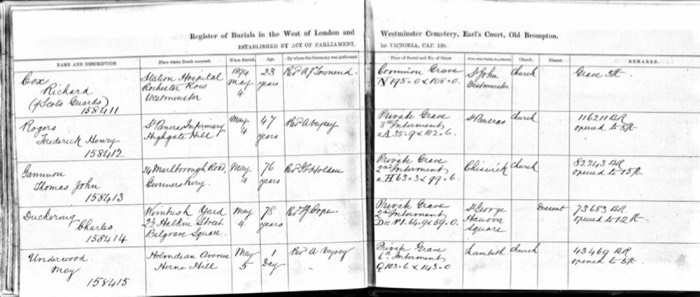 Register of Burials in the West of London and Westminster Cemetery, Earl's Court, Old Brompton.
ESTABLISHED BY ACT OF PARLIAMENT, 1st VICTORIA, CAP. 130.
NAME AND DESCRIPTION Place where Death occurred. When Buried. Age. By whom the Ceremony was performed Place of Burial and No. of Grave Church. Dissent. REMARKS.
Cox
Richard
(Scots Guards)
158411
Station Hospital
Rochester Row
Westminster
1894
May
4
23
years
Revd A J Townend
Common Grave
N 195.0 x 108.0
St John
Westminster
Church
Grave
Rogers
Frederick Henry
158412
St Pancras Infirmary
Highgate Hill
May
4
47
years
Private Grave
3rd Interment
A 35.9 x 102.6
St Pancras
Church
116211 BR
opened to 8ft
Gannon
Thomas John
158413
24 Marlborough Road,
Gunnersbury.
May
4
76
years
Revd Holden
Private Grave
2nd Interment
H 63.3 x 99.6.
Chiswick
Church
82343 BR
opened to
Duckering
Charles
158414
Wimbush Yard
Halkin Street
Belgrave Square.
May
4
78
years
Pope.
Private Grave
2nd Interment
St George
Hanover
Square
Dissent
73683 BR
opened to
Underwood
May
158415
Holmdean Avenue
Herne Hill
May
5
1
Day
Revd A
Private Grave
6th Interment
G 103.6 x 143.0
Lambeth
Church
43469 BR
opened to